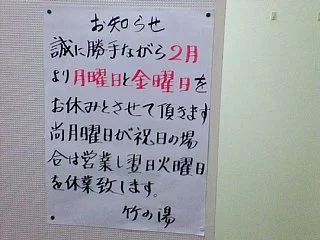 お知らせ
誠に勝手ながら2月
より月曜日と金曜日を
お休みとさせて頂きます
尚月曜日が祝日の場
合は営業し翌日火曜日
を休業致します。
竹の湯